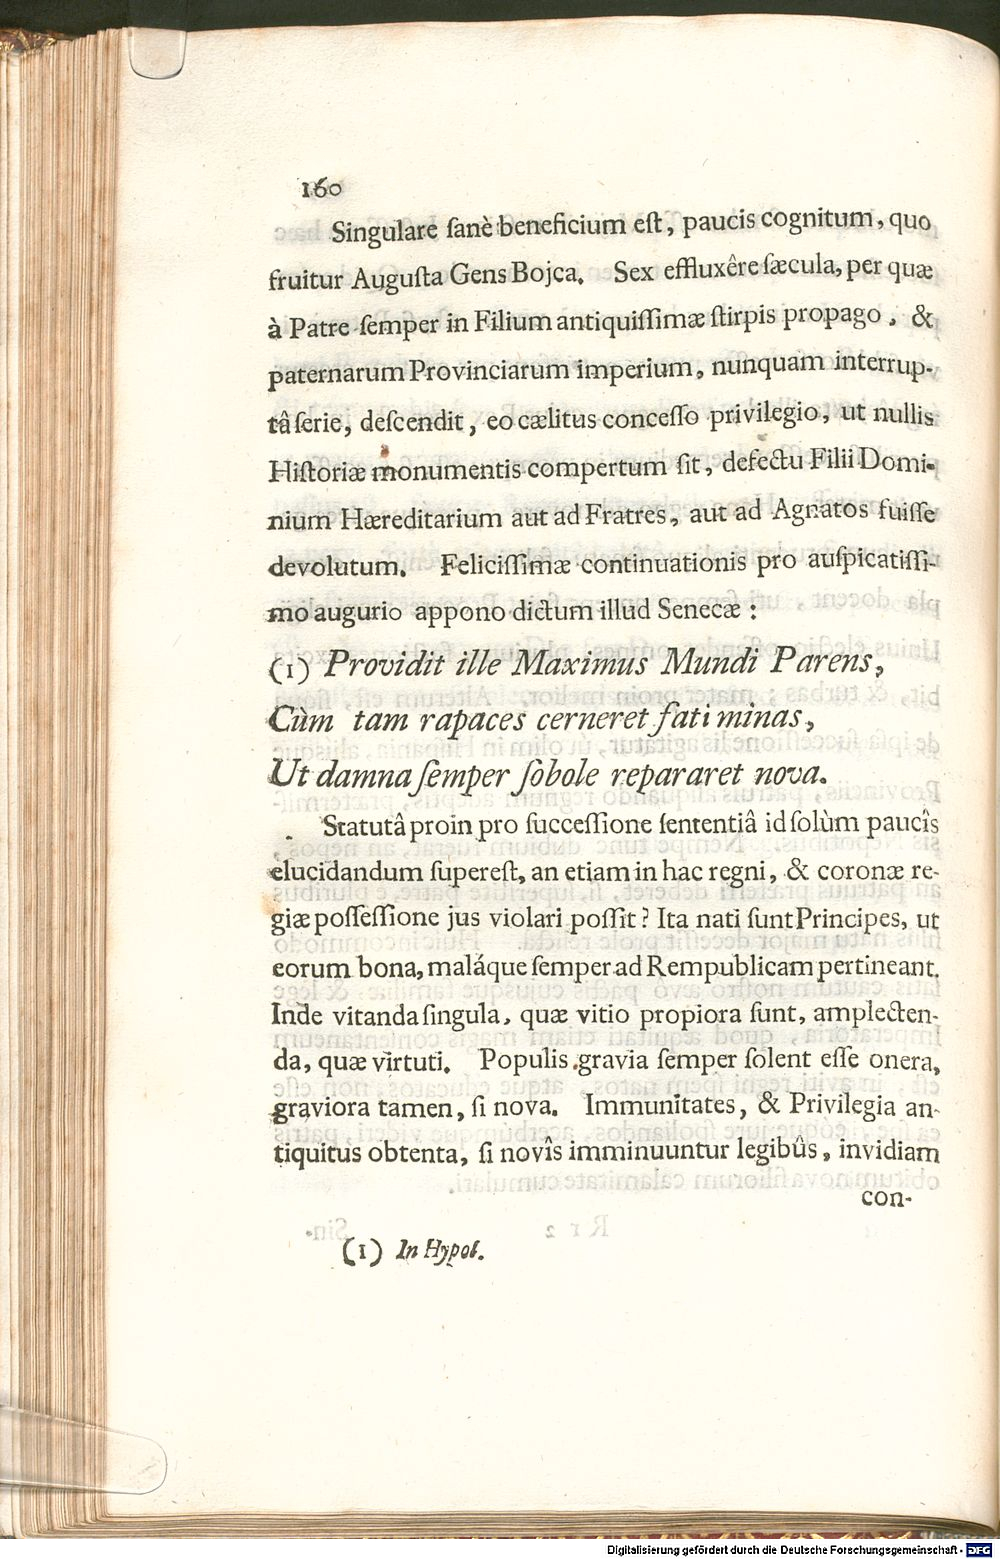 160
Singulare ſanè beneficium eſt, paucis cognitum, quo
fruitur Auguſta Gens Bojca. Sex effluxêre ſæcula, per quæ
à Patre ſemper in Filium antiquiſſimæ ſtirpis propago, &
paternarum Provinciarum imperium, nunquam interrup-
tâ ſerie, deſcendit, eo cælitus conceſſo privilegio, ut nullis
Hiſtoriæ monumentis compertum ſit, defectu Filii Domi-
nium Hæreditarium aut ad Fratres, aut ad Agnatos fuiſſe
devolutum. Feliciſſimæ continuationis pro auſpicatiſſi-
mo augurio appono dictum illud Senecæ :
(1) Providit ille Maximus Mundi Parens,
Cùm tam rapaces cerneret fati minas,
Ut damna ſemper ſobole repararet nova.
Statutâ proin pro ſucceſſione ſententiâ id ſolùm paucîs
elucidandum ſupereſt, an etiam in hac regni, & coronæ re-
giæ poſſeſſione jus violari poſſit? Ita nati ſunt Principes, ut
eorum bona, maláque ſemper ad Rempublicam pertineant.
Inde vitanda ſingula, quæ vitio propiora ſunt, amplecten-
da, quæ virtuti. Populis gravia ſemper ſolent eſſe onera,
graviora tamen, ſi nova. Immunitates, & Privilegia an-
tiquitus obtenta, ſi novîs imminuuntur legibûs, invidiam
con-
(1) In Hypol.
Digitalisierung gefördert durch die Deutsche Forschungsgemeinschaft - DFG